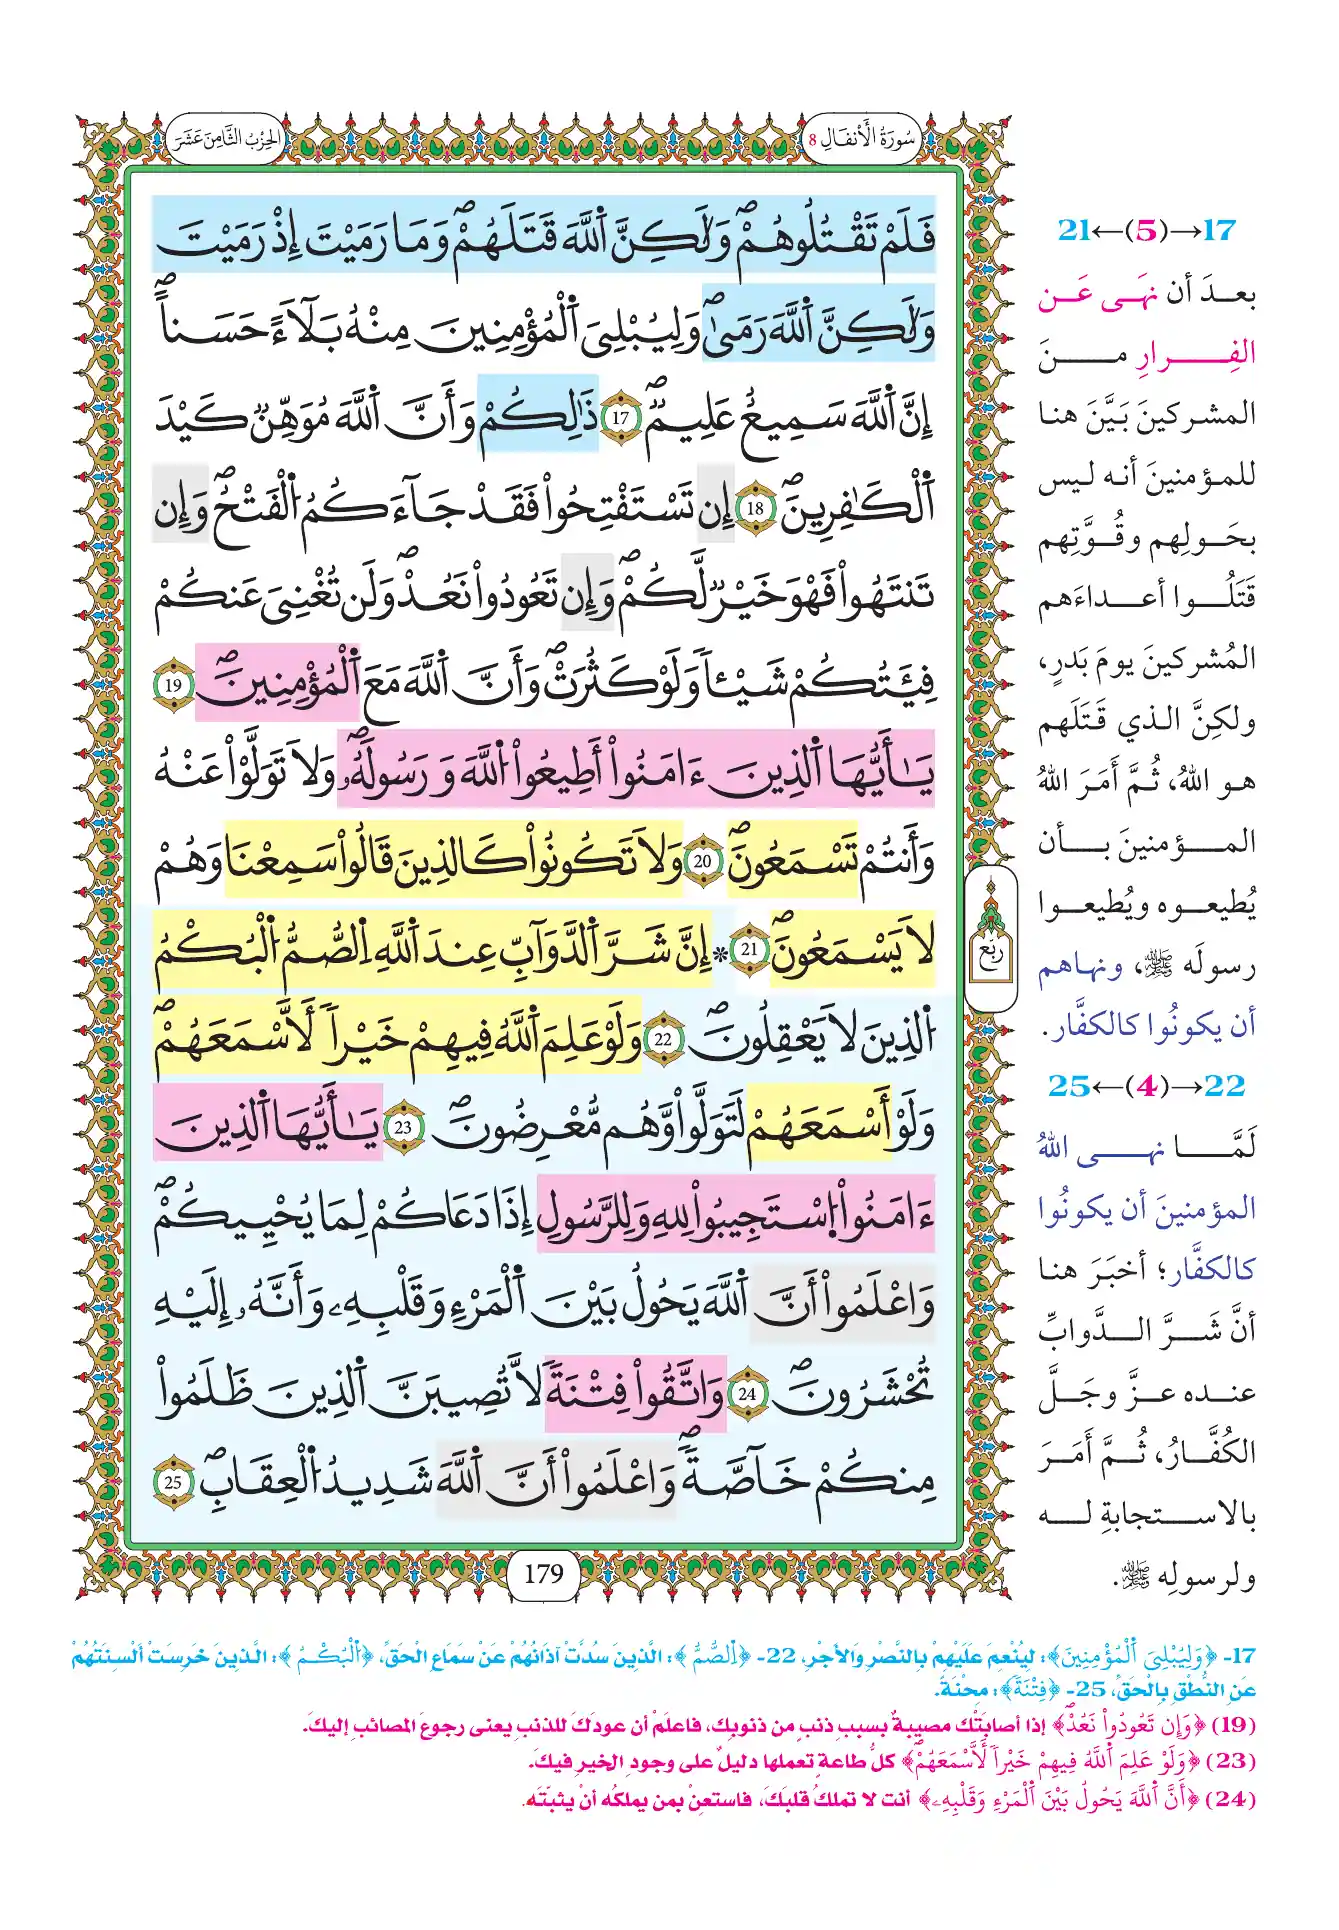 سُورَةُ الْأَنفَالِ 8
الحِزْبُ الثَّامِنَ عَشَرَ
فَلَمْ تَقْتُلُوهُمْ وَلَٰكِنَّ ٱللَّهَ قَتَلَهُمْ وَمَا رَمَيْتَ إِذْ رَمَيْتَ
وَلَٰكِنَّ ٱللَّهَ رَمَىٰ وَلِيُبْلِىَ ٱلْمُؤْمِنِينَ مِنْهُ بَلَآءً حَسَناً
إِنَّ ٱللَّهَ سَمِيعٌ عَلِيمٌ 17 ذَٰلِكُمْ وَأَنَّ ٱللَّهَ مُوَهِّنٌ كَيْدَ
ٱلْكَٰفِرِينَ 18 إِن تَسْتَفْتِحُواْ فَقَدْ جَآءَكُمُ ٱلْفَتْحُ وَإِن
تَنتَهُواْ فَهْوَ خَيْرٌ لَّكُمْ وَإِن تَعُودُواْ نَعُدْ وَلَن تُغْنِىَ عَنكُمْ
فِئَتُكُمْ شَيْـٔاً وَلَوْ كَثُرَتْ وَأَنَّ ٱللَّهَ مَعَ ٱلْمُؤْمِنِينَ 19
يَٰأَيُّهَا ٱلذِينَ ءَامَنُواْ أَطِيعُواْ ٱللَّهَ وَرَسُولَهُۥ وَلَا تَوَلَّوْاْ عَنْهُ
وَأَنتُمْ تَسْمَعُونَ 20 وَلَا تَكُونُواْ كَالذِينَ قَالُواْ سَمِعْنَا وَهُمْ
لَا يَسْمَعُونَ 21 * إِنَّ شَرَّ ٱلدَّوَآبِّ عِندَ ٱللَّهِ ٱلصُّمُّ ٱلْبُكْمُ
ٱلذِينَ لَا يَعْقِلُونَ 22 وَلَوْ عَلِمَ ٱللَّهُ فِيهِمْ خَيْراً لَّأَسْمَعَهُمْ
وَلَوْ أَسْمَعَهُمْ لَتَوَلَّواْ وَّهُم مُّعْرِضُونَ 23 يَٰأَيُّهَا ٱلذِينَ
ءَامَنُواْ ٱسْتَجِيبُواْ لِلهِ وَلِلرَّسُولِ إِذَا دَعَاكُمْ لِمَا يُحْيِيكُمْ
وَاعْلَمُواْ أَنَّ ٱللَّهَ يَحُولُ بَيْنَ ٱلْمَرْءِ وَقَلْبِهِۦ وَأَنَّهُۥ إِلَيْهِ
تُحْشَرُونَ 24 وَاتَّقُواْ فِتْنَةً لَّا تُصِيبَنَّ ٱلذِينَ ظَلَمُواْ
مِنكُمْ خَآصَّةً وَاعْلَمُواْ أَنَّ ٱللَّهَ شَدِيدُ ٱلْعِقَابِ 25
رُبُع
179
17→(5)←21
بعدَ أن نهَى عَن
الفِرارِ منَ
المشركينَ بَيَّنَ هنا
للمؤمنينَ أنه ليس
بحَولِهم وقُوَّتِهم
قَتَلُوا أعداءَهم
المُشركينَ يومَ بَدرٍ،
ولكِنَّ الذي قَتَلَهم
هو اللهُ، ثُمَّ أَمَرَ اللهُ
المؤمنينَ بأن
يُطيعوه ويُطيعوا
رسولَه ﷺ، ونهاهم
أن يكونُوا كالكفَّار.
22→(4)←25
لَمَّا نهى اللهُ
المؤمنينَ أن يكونُوا
كالكفَّار؛ أخبَرَ هنا
أنَّ شَرَّ الدَّوابِّ
عنده عزَّ وجَلَّ
الكُفَّارُ، ثُمَّ أَمَرَ
بالاستجابةِ له
ولرسولِه ﷺ.
17- ﴿وَلِيُبْلِىَ ٱلْمُؤْمِنِينَ﴾: ليُنْعِمَ عَلَيْهِمْ بِالنَّصْرِ وَالأَجْرِ، 22- ﴿ٱلصُّمُّ﴾: الَّذِينَ سُدَّتْ آذَانُهُمْ عَنْ سَمَاعِ الْحَقِّ، ﴿ٱلْبُكْمُ﴾: الَّذِينَ خَرِسَتْ أَلْسِنَتُهُمْ
عَنِ النُّطْقِ بِالْحَقِّ، 25- ﴿فِتْنَةً﴾: مِحْنَةً.
(19) ﴿وَإِن تَعُودُواْ نَعُدْ﴾ إذا أصابَتْك مصيبةٌ بسببِ ذنبٍ من ذنوبِك، فاعلَمْ أن عودَكَ للذنبِ يعنى رجوعَ المصائبِ إليكَ.
(23) ﴿وَلَوْ عَلِمَ ٱللَّهُ فِيهِمْ خَيْراً لَّأَسْمَعَهُمْ﴾ كلُّ طاعةٍ تعملها دليلٌ على وجودِ الخيرِ فيكَ.
(24) ﴿أَنَّ ٱللَّهَ يَحُولُ بَيْنَ ٱلْمَرْءِ وَقَلْبِهِۦ﴾ أنت لا تملكُ قلبَكَ، فاستعنْ بمن يملكُه أنْ يثبّتَه.